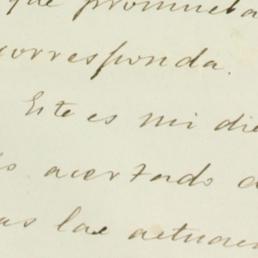 que promueva
corresponda.
Este es mi dic
acertado
las actuac